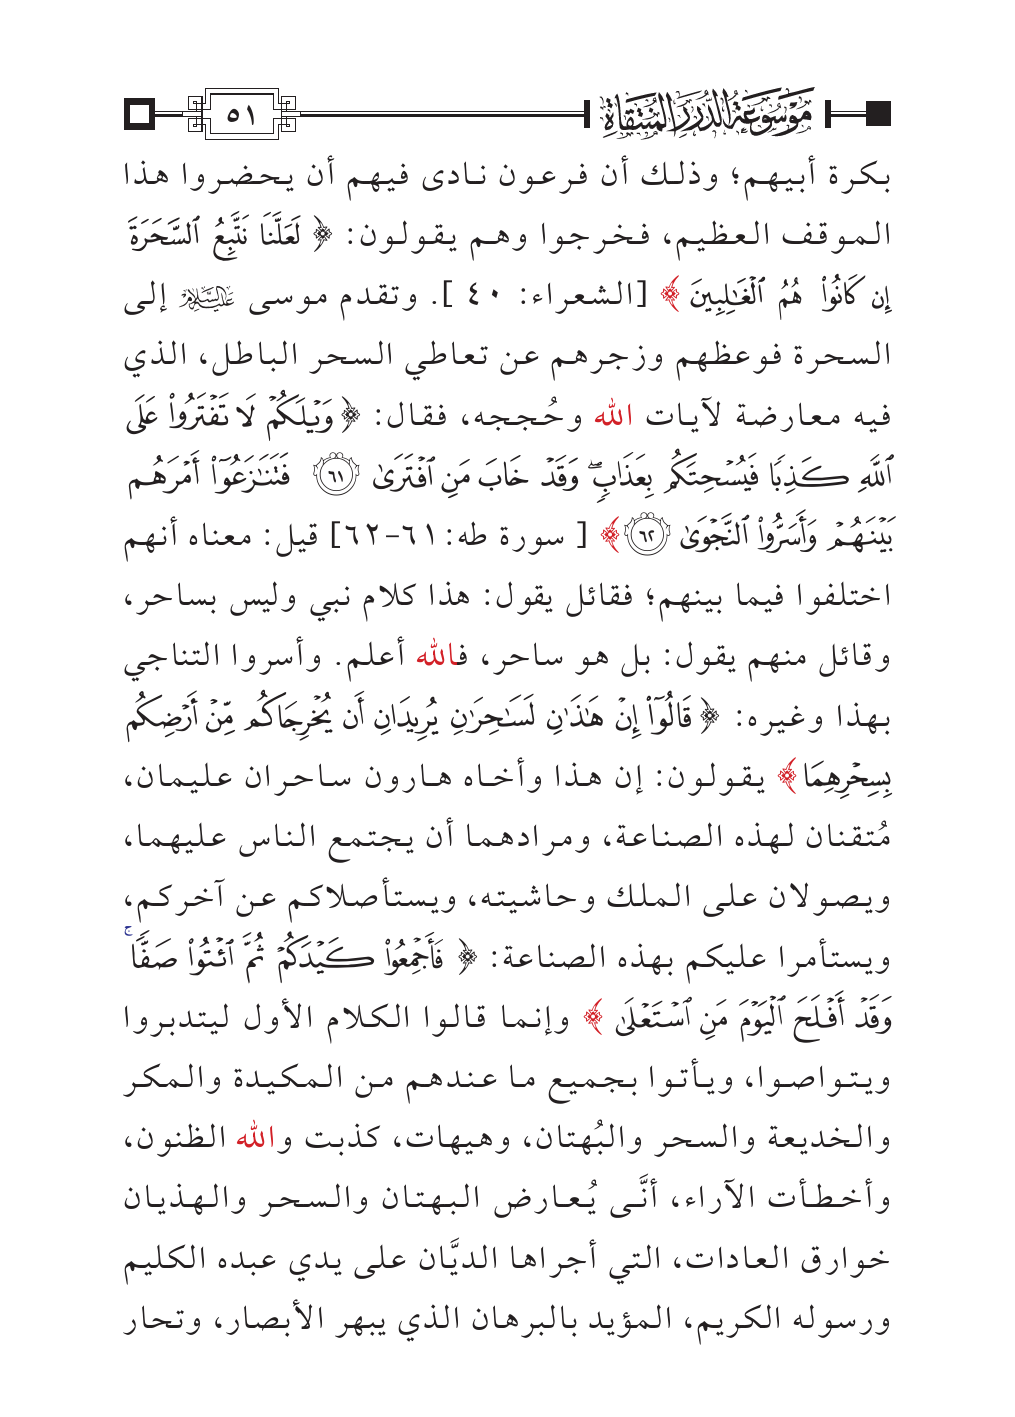 موسوعة الدرر المنتقاة
٥١
بكرة أبيهم؛ وذلك أن فرعون نادى فيهم أن يحضروا هذا
الموقف العظيم، فخرجوا وهم يقولون: ﴿ لَعَلَّنَا نَتَّبِعُ ٱلسَّحَرَةَ
إِن كَانُوا۟ هُمُ ٱلْغَـٰلِبِينَ ﴾ [الشعراء: ٤٠ ]. وتقدم موسى عليه السلام إلى
السحرة فوعظهم وزجرهم عن تعاطي السحر الباطل، الذي
فيه معارضة لآيات الله وحُججه، فقال: ﴿ وَيْلَكُمْ لَا تَفْتَرُوا۟ عَلَى
ٱللَّهِ كَذِبًا فَيُسْحِتَكُم بِعَذَابٍ ۖ وَقَدْ خَابَ مَنِ ٱفْتَرَىٰ ٦١ فَتَنَـٰزَعُوٓا۟ أَمْرَهُم
بَيْنَهُمْ وَأَسَرُّوا۟ ٱلنَّجْوَىٰ ٦٢ ﴾ [ سورة طه: ٦١-٦٢] قيل: معناه أنهم
اختلفوا فيما بينهم؛ فقائل يقول: هذا كلام نبي وليس بساحر،
وقائل منهم يقول: بل هو ساحر، فالله أعلم. وأسروا التناجي
بهذا وغيره: ﴿ قَالُوٓا۟ إِنْ هَـٰذَٰنِ لَسَـٰحِرَٰنِ يُرِيدَانِ أَن يُخْرِجَاكُم مِّنْ أَرْضِكُم
بِسِحْرِهِمَا ﴾ يقولون: إن هذا وأخاه هارون ساحران عليمان،
مُتقنان لهذه الصناعة، ومرادهما أن يجتمع الناس عليهما،
ويصولان على الملك وحاشيته، ويستأصلاكم عن آخركم،
ويستأمرا عليكم بهذه الصناعة: ﴿ فَأَجْمِعُوا۟ كَيْدَكُمْ ثُمَّ ٱئْتُوا۟ صَفًّا ۚ
وَقَدْ أَفْلَحَ ٱلْيَوْمَ مَنِ ٱسْتَعْلَىٰ ﴾ وإنما قالوا الكلام الأول ليتدبروا
ويتواصوا، ويأتوا بجميع ما عندهم من المكيدة والمكر
والخديعة والسحر والبُهتان، وهيهات، كذبت والله الظنون،
وأخطأت الآراء، أنَّى يُعارض البهتان والسحر والهذيان
خوارق العادات، التي أجراها الديَّان على يدي عبده الكليم
ورسوله الكريم، المؤيد بالبرهان الذي يبهر الأبصار، وتحار